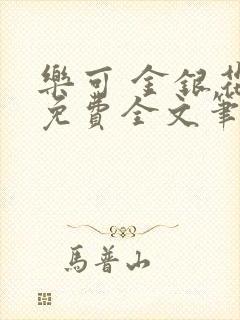 樂可 金銀花
免費全文筆
馬普山